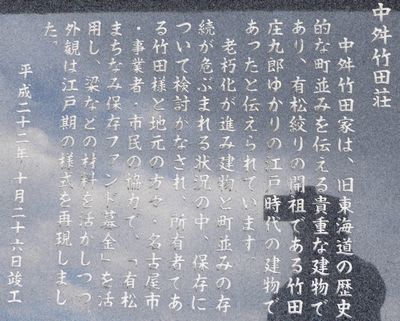 中舛竹田荘
中舛竹田家は、旧東海道の歴史
的な町並みを伝える貴重な建物で
あり、有松絞りの開祖である竹田
庄九郎ゆかりの江戸時代の建物で
あったと伝えられています。
老朽化が進み建物と町並みの存
続が危ぶまれる状況の中、保存に
ついて検討がなされ、所有者であ
る竹田様と地元の方々・名古屋市
・事業者・市民の協力で、「有松
まちなみ保存ファンド募金」を活
用し、梁などの材料を活かしつつ
外観は江戸期の様式を再現しまし
た。
平成二十二年、十月二十六日竣工